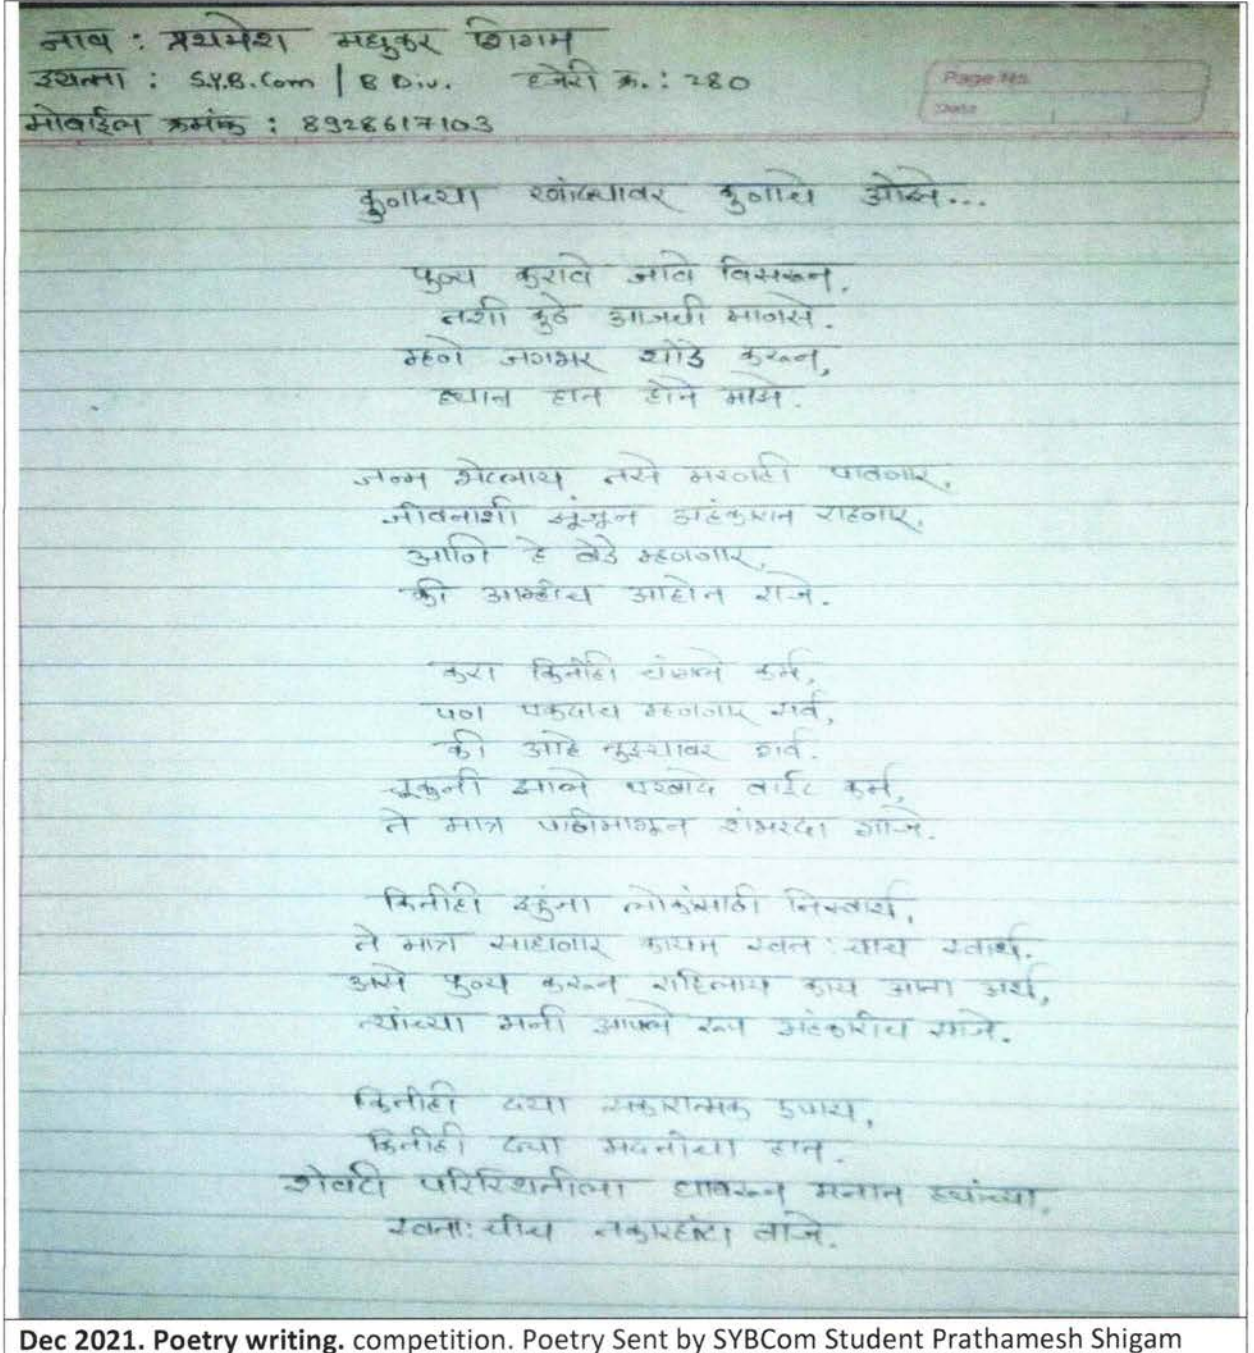 नाव : प्रथमेश मधुकर शिगम
इयत्ता : S.Y.B.Com | B Div. हजेरी क्र. : 280
मोबाईल क्रमांक : 8928617103
Page No.
Date
कुनाच्या खांद्यावर कुनाचे ओझे...
पुन्य करावे जावे विसरून,
तशी कुठे आजची मानसे.
म्हणे जगभर थोडे करून,
ह्यात हात होते माझे.
जन्म भेटलाय तसे मरनही पावनार,
जीवनाशी झुंजून अहंकारात राहनार,
आनि हे वेडे म्हणनार,
की आम्हीच आहोत राजे.
करा कितीही चांगले कर्म,
पण एकदाच म्हणनार सर्व,
की आहे तुझ्यावर गर्व.
चूकुनी झाले एखादे वाईट कर्म,
ते मात्र पाठीमागून शंभरदा गाजे.
कितीही झटुंना लोकांसाठी निस्वार्थ,
ते मात्र साधनार कायम स्वत:चाच स्वार्थ.
असे पुन्य करून राहिलाय काय आता अर्थ,
त्यांच्या मनी आपले रूप अहंकारीच साजे.
कितीही द्या सकारात्मक उपाय,
कितीही द्या मदतीचा हात.
शेवटी परिस्थितीला घाबरून मनात ह्यांच्या,
स्वता:चीच नकारघंटा वाजे.
Dec 2021. Poetry writing. competition. Poetry Sent by SYBCom Student Prathamesh Shigam